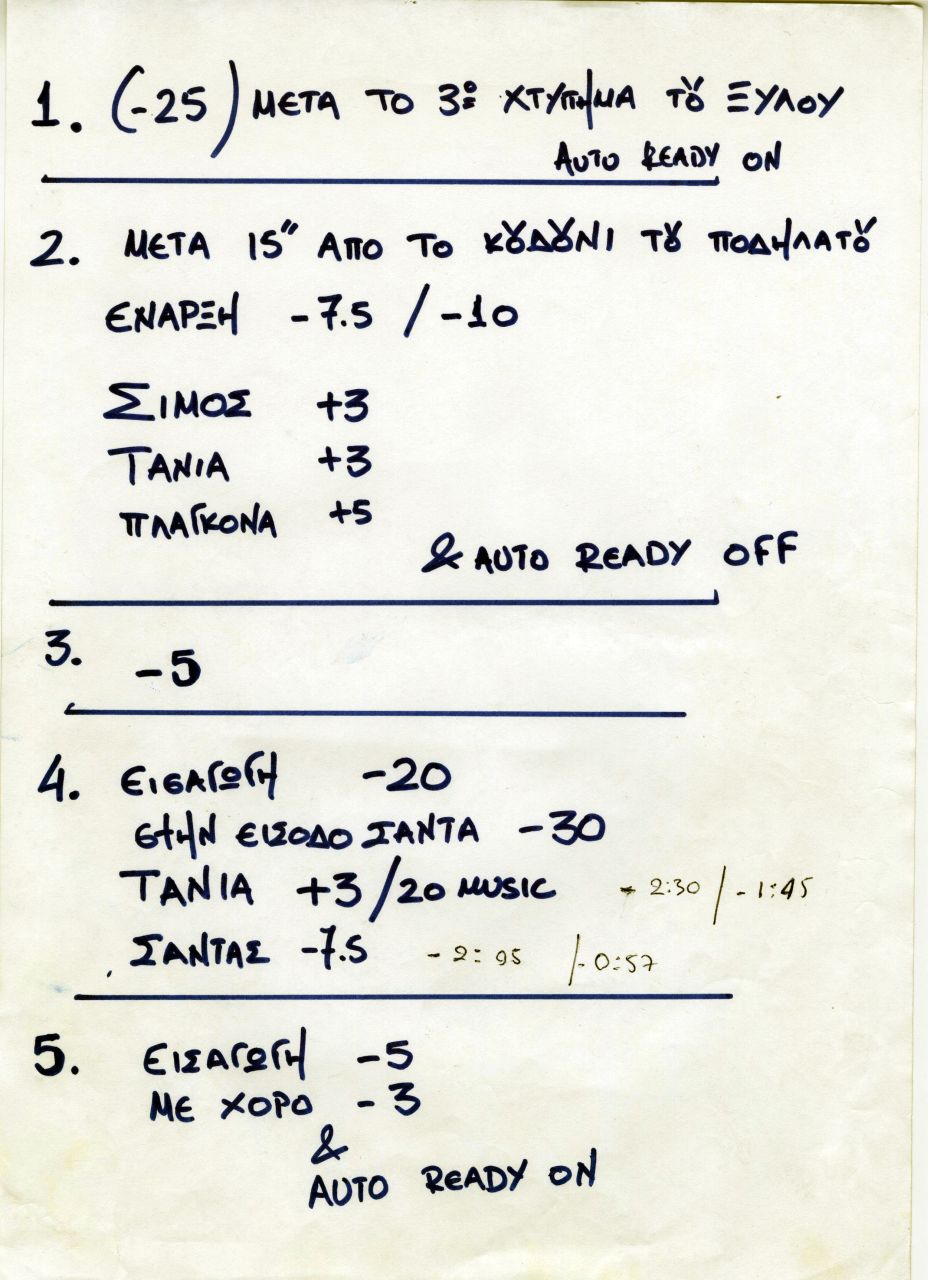 1. (-25) ΜΕΤΑ ΤΟ 3º ΧΤΥΠΗΜΑ ΤȢ ΞΥΛΟΥ
AUTO READY ON
2. ΜΕΤΑ 15" ΑΠΟ ΤΟ ΚȢΔȢΝΙ ΤȢ ΠΟΔΗΛΑΤȢ
ΕΝΑΡΞΗ -7.5 / -10
ΣΙΜΟΣ +3
ΤΑΝΙΑ +3
ΠΛΑΓΚΟΝΑ +5
& AUTO READY OFF
3. -5
4. ΕΙΣΑΓΩΓΗ -20
ΣΤΗΝ ΕΙΣΟΔΟ ΣΑΝΤΑ -30
ΤΑΝΙΑ +3 / 20 MUSIC - 2:30 / - 1:45
ΣΑΝΤΑΣ -7.5 - 2:05 / - 0:57
5. ΕΙΣΑΓΩΓΗ -5
ΜΕ ΧΟΡΟ -3
&
AUTO READY ON